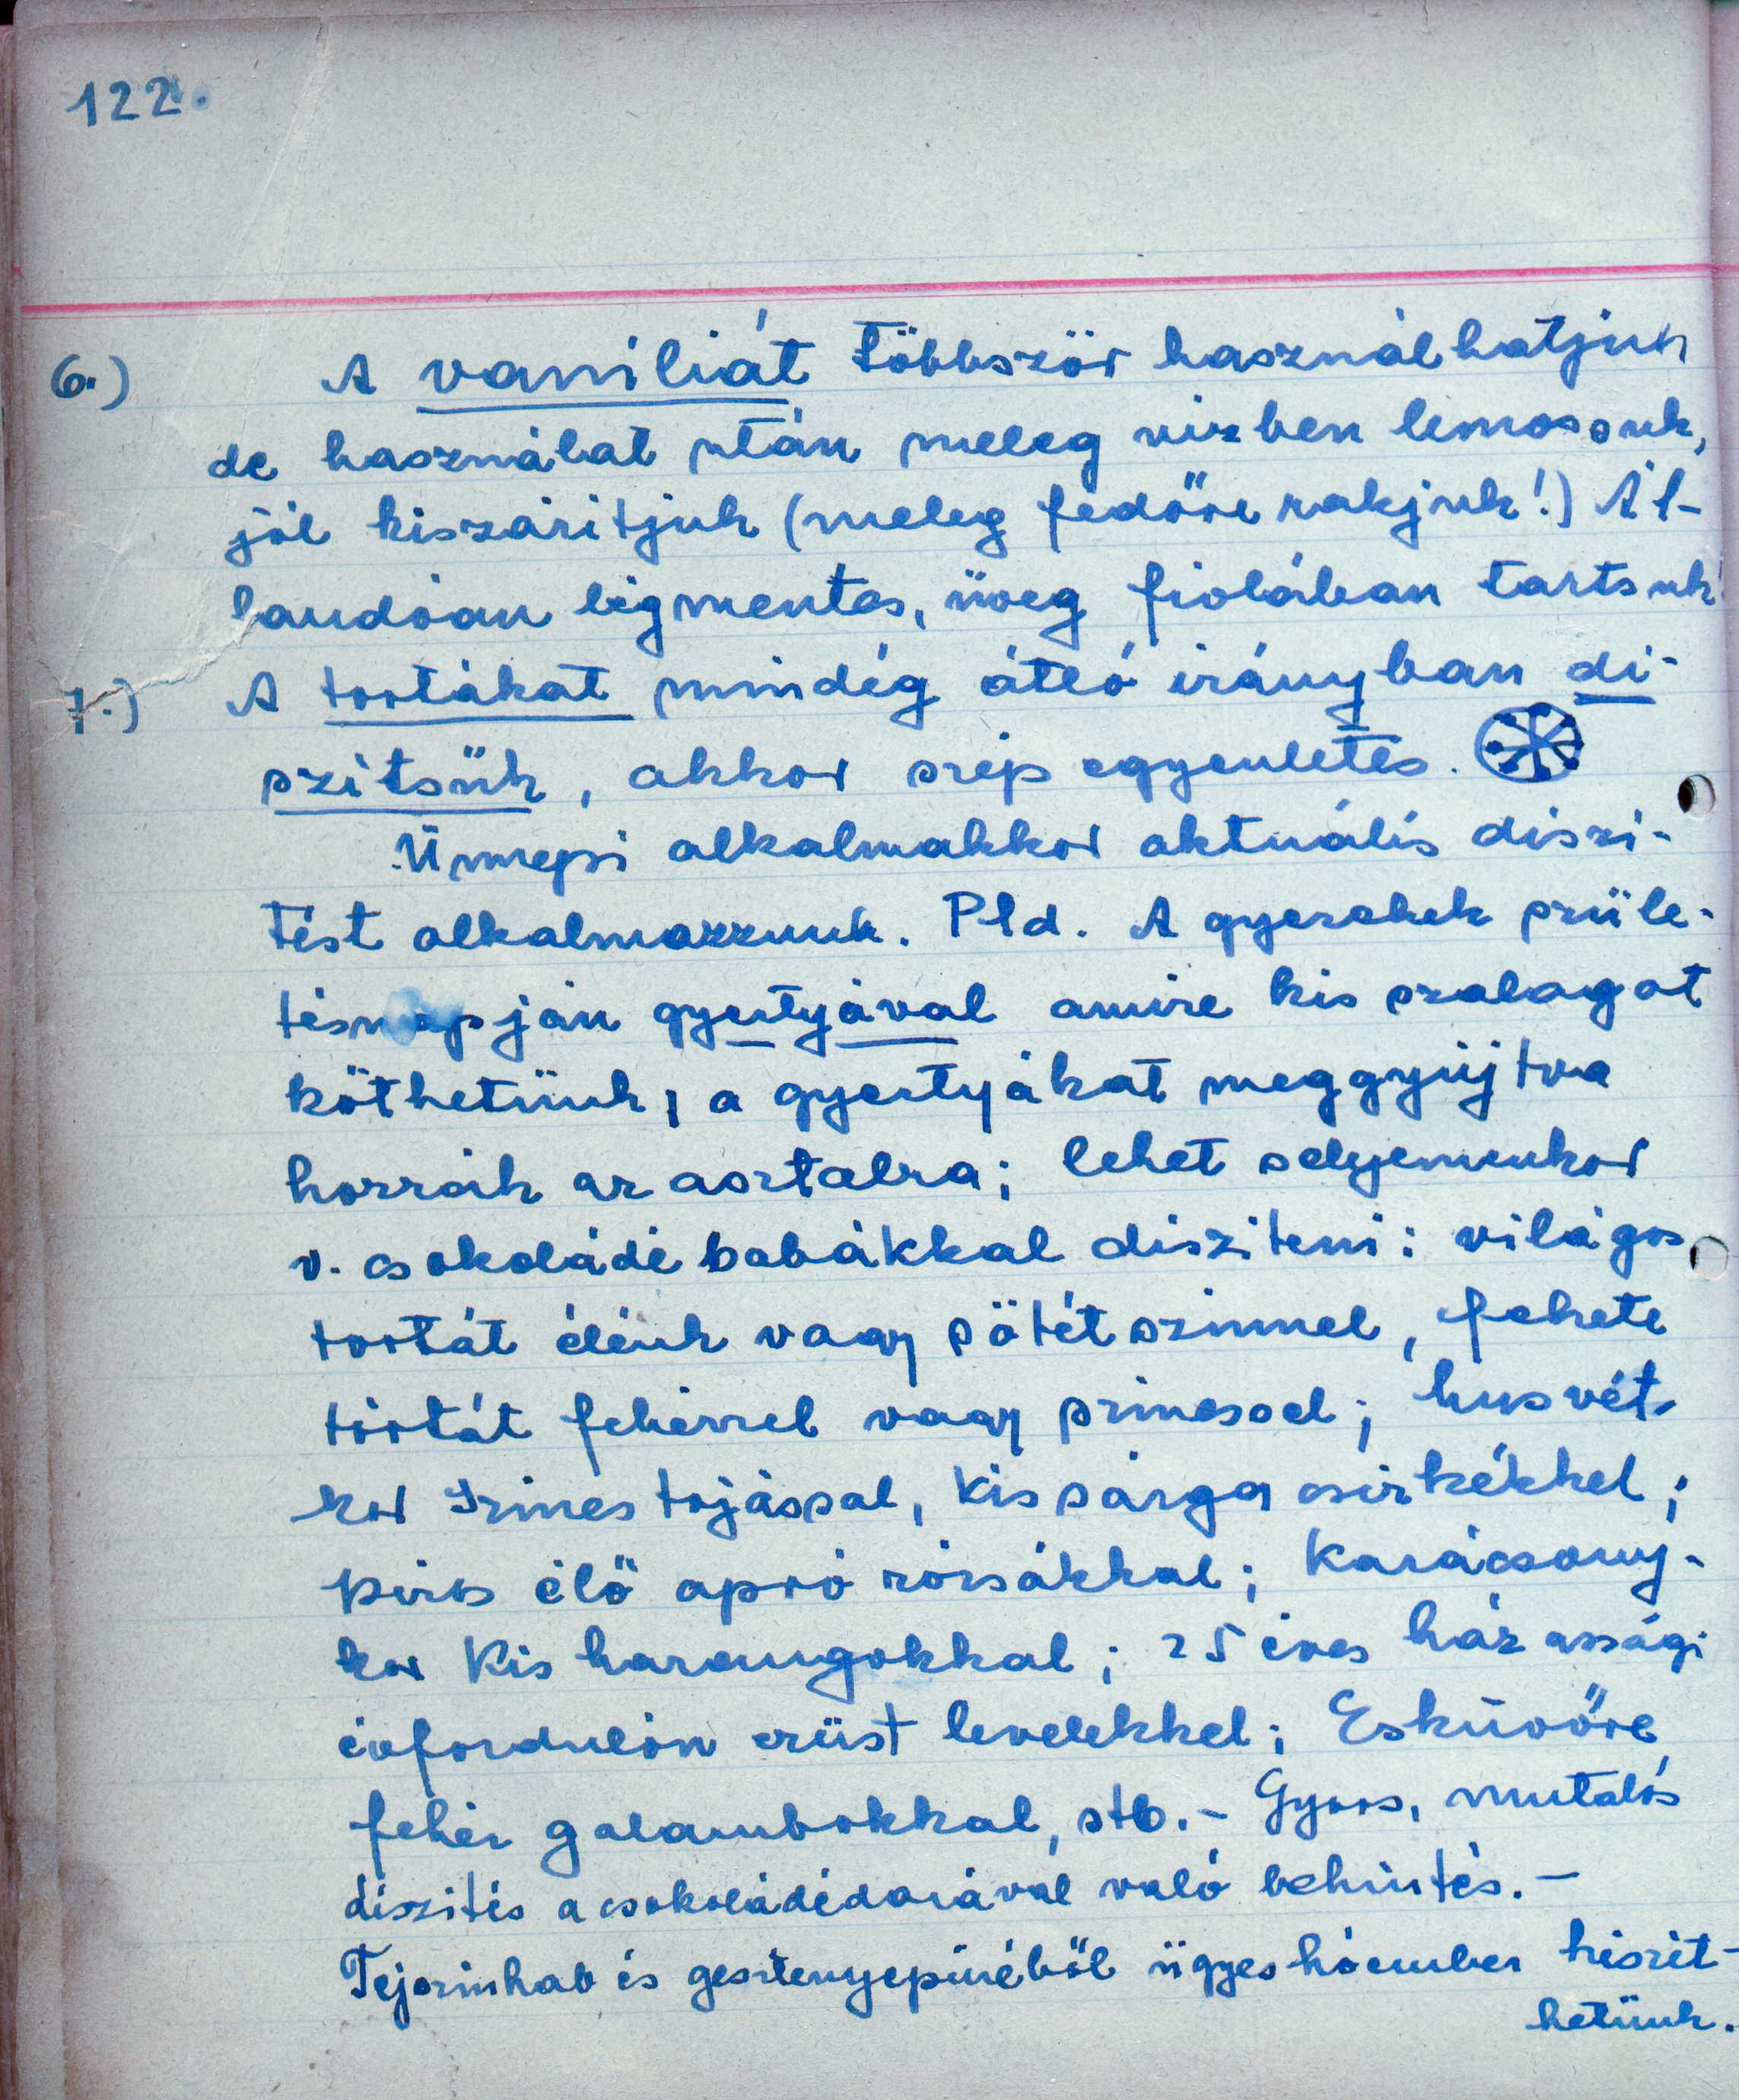 122.
6.) A vaníliát többször használhatjuk
de használat után meleg vizben lemossuk,
jól kiszáritjuk (meleg fedőre rakjuk!) Ál-
landóan légmentes, üveg fiolában tartsuk!
7.) A tortákat mindég átló irányban di-
szitsük, akkor szép egyenletes.
Ünnepi alkalmakkor aktuális diszi-
tést alkalmazzunk. Pld. A gyerekek szüle-
tésnapján gyertyával amire kis szalagot
köthetünk, a gyertyákat meggyújtva
hozzák az asztalra; lehet selyemcukor
v. csokoládé babákkal disziteni: világos
tortát élénk vagy sötét szinnel, fekete
tortát fehérrel vagy szinessel; husvét-
kor szines tojással, kis sárga csirkékkel;
piros élő apró rózsákkal; Karácsony-
kor kis harangokkal; 25 éves házassági
évfordulón ezüst levelekkel; Esküvőre
fehér galambokkal, stb. - Gyors, mutatós
diszités a csokoládédarával való behintés. -
Tejszinhab és gesztenyepüréből ügyes hóember készit-
hetünk.